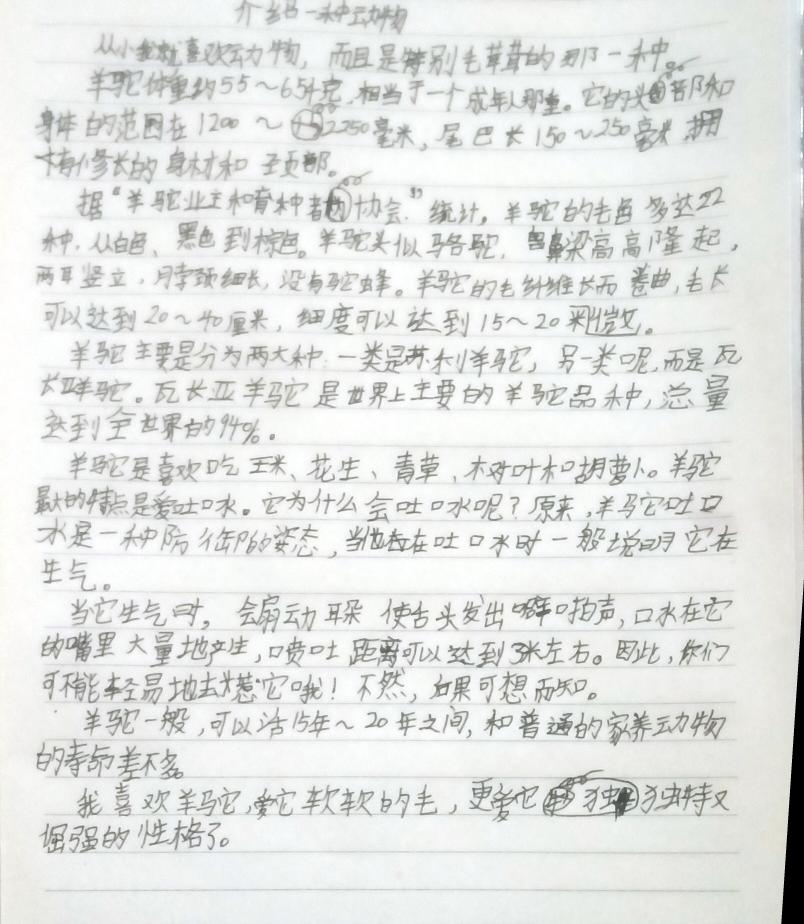 介绍一种动物
从小我就喜欢动物，而且是特别毛茸茸的那一种。
羊驼体重约55～65千克，相当于一个成年人那重。它的头部和
身体的范围在1200～2250毫米，尾巴长150～250毫米，拥
有修长的身材和颈部。
据“羊驼业主和育种者协会”统计。羊驼的毛色多达22
种，从白色、黑色到棕色。羊驼头似骆驼，鼻梁高高隆起，
两耳竖立，脖颈细长，没有驼峰。羊驼的毛纤维长而卷曲，毛长
可以达到20～40厘米，细度可以达到15～20微。
羊驼主要是分为两大种，一类是苏利羊驼，另一类呢，而是瓦
长亚羊驼。瓦长亚羊驼是世界上主要的羊驼品种，总量
达到全世界的94%。
羊驼是喜欢吃玉米、花生、青草、树叶和胡萝卜。羊驼
最大的特点是爱吐口水。它为什么会吐口水呢？原来，羊驼吐口
水是一种防御的姿态，当他在吐口水时一般说明它在
生气。
当它生气时，会扇动耳朵使舌头发出噼啪声，口水在它
的嘴里大量地产生，喷吐距离可以达到3米左右。因此，你们
可不能轻易地去惹它哦！不然，如果可想而知。
羊驼一般，可以活15年～20年之间，和普通的家养动物
的寿命差不多。
我喜欢羊驼，爱它软软的毛，更爱它独特又
倔强的性格了。